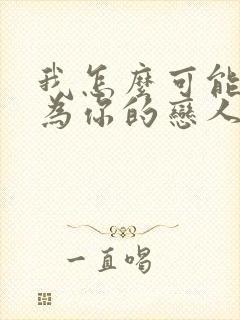 我怎麼可能
為你的戀人
一直唱